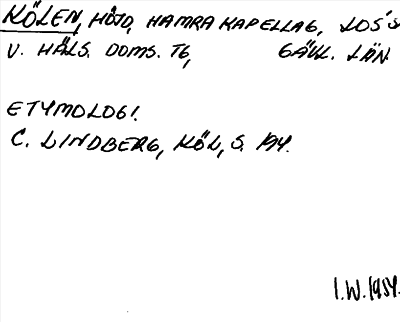 KÖLEN, HÖJD, HAMRA KAPELLAG, LOS'S
V. HÄLS. DOMS. TG, GÄVL. LÄN
ETYMOLOGI.
C. LINDBERG, KÖL, S. 194.
I.W. 1954.